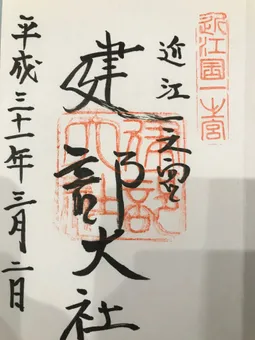 近江國一之宮
近江一之宮
建部大社
建部大社
平成三十一年三月二日